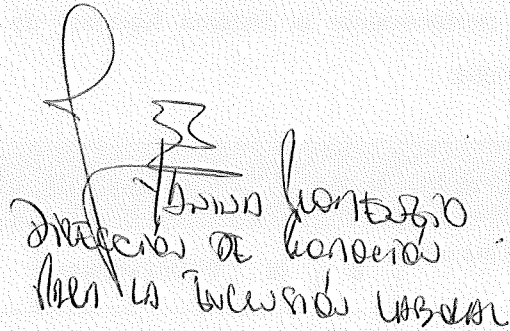 Yanina
Dirección de Promoción
Para la Inclusión Laboral